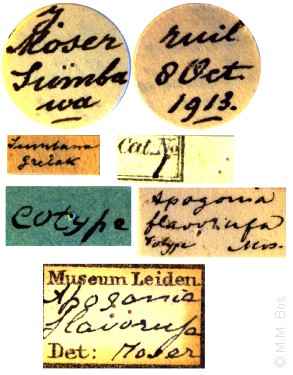 Moser
Sümba
wa
ruil
8 Oct
1913.
Sumbawa
Cat. No
1
Cotype
Apogonia
flavorufa
Cotype Mos.
Museum Leiden.
Apogonia
flavorufa
Det: Moser
© M.M. Bos